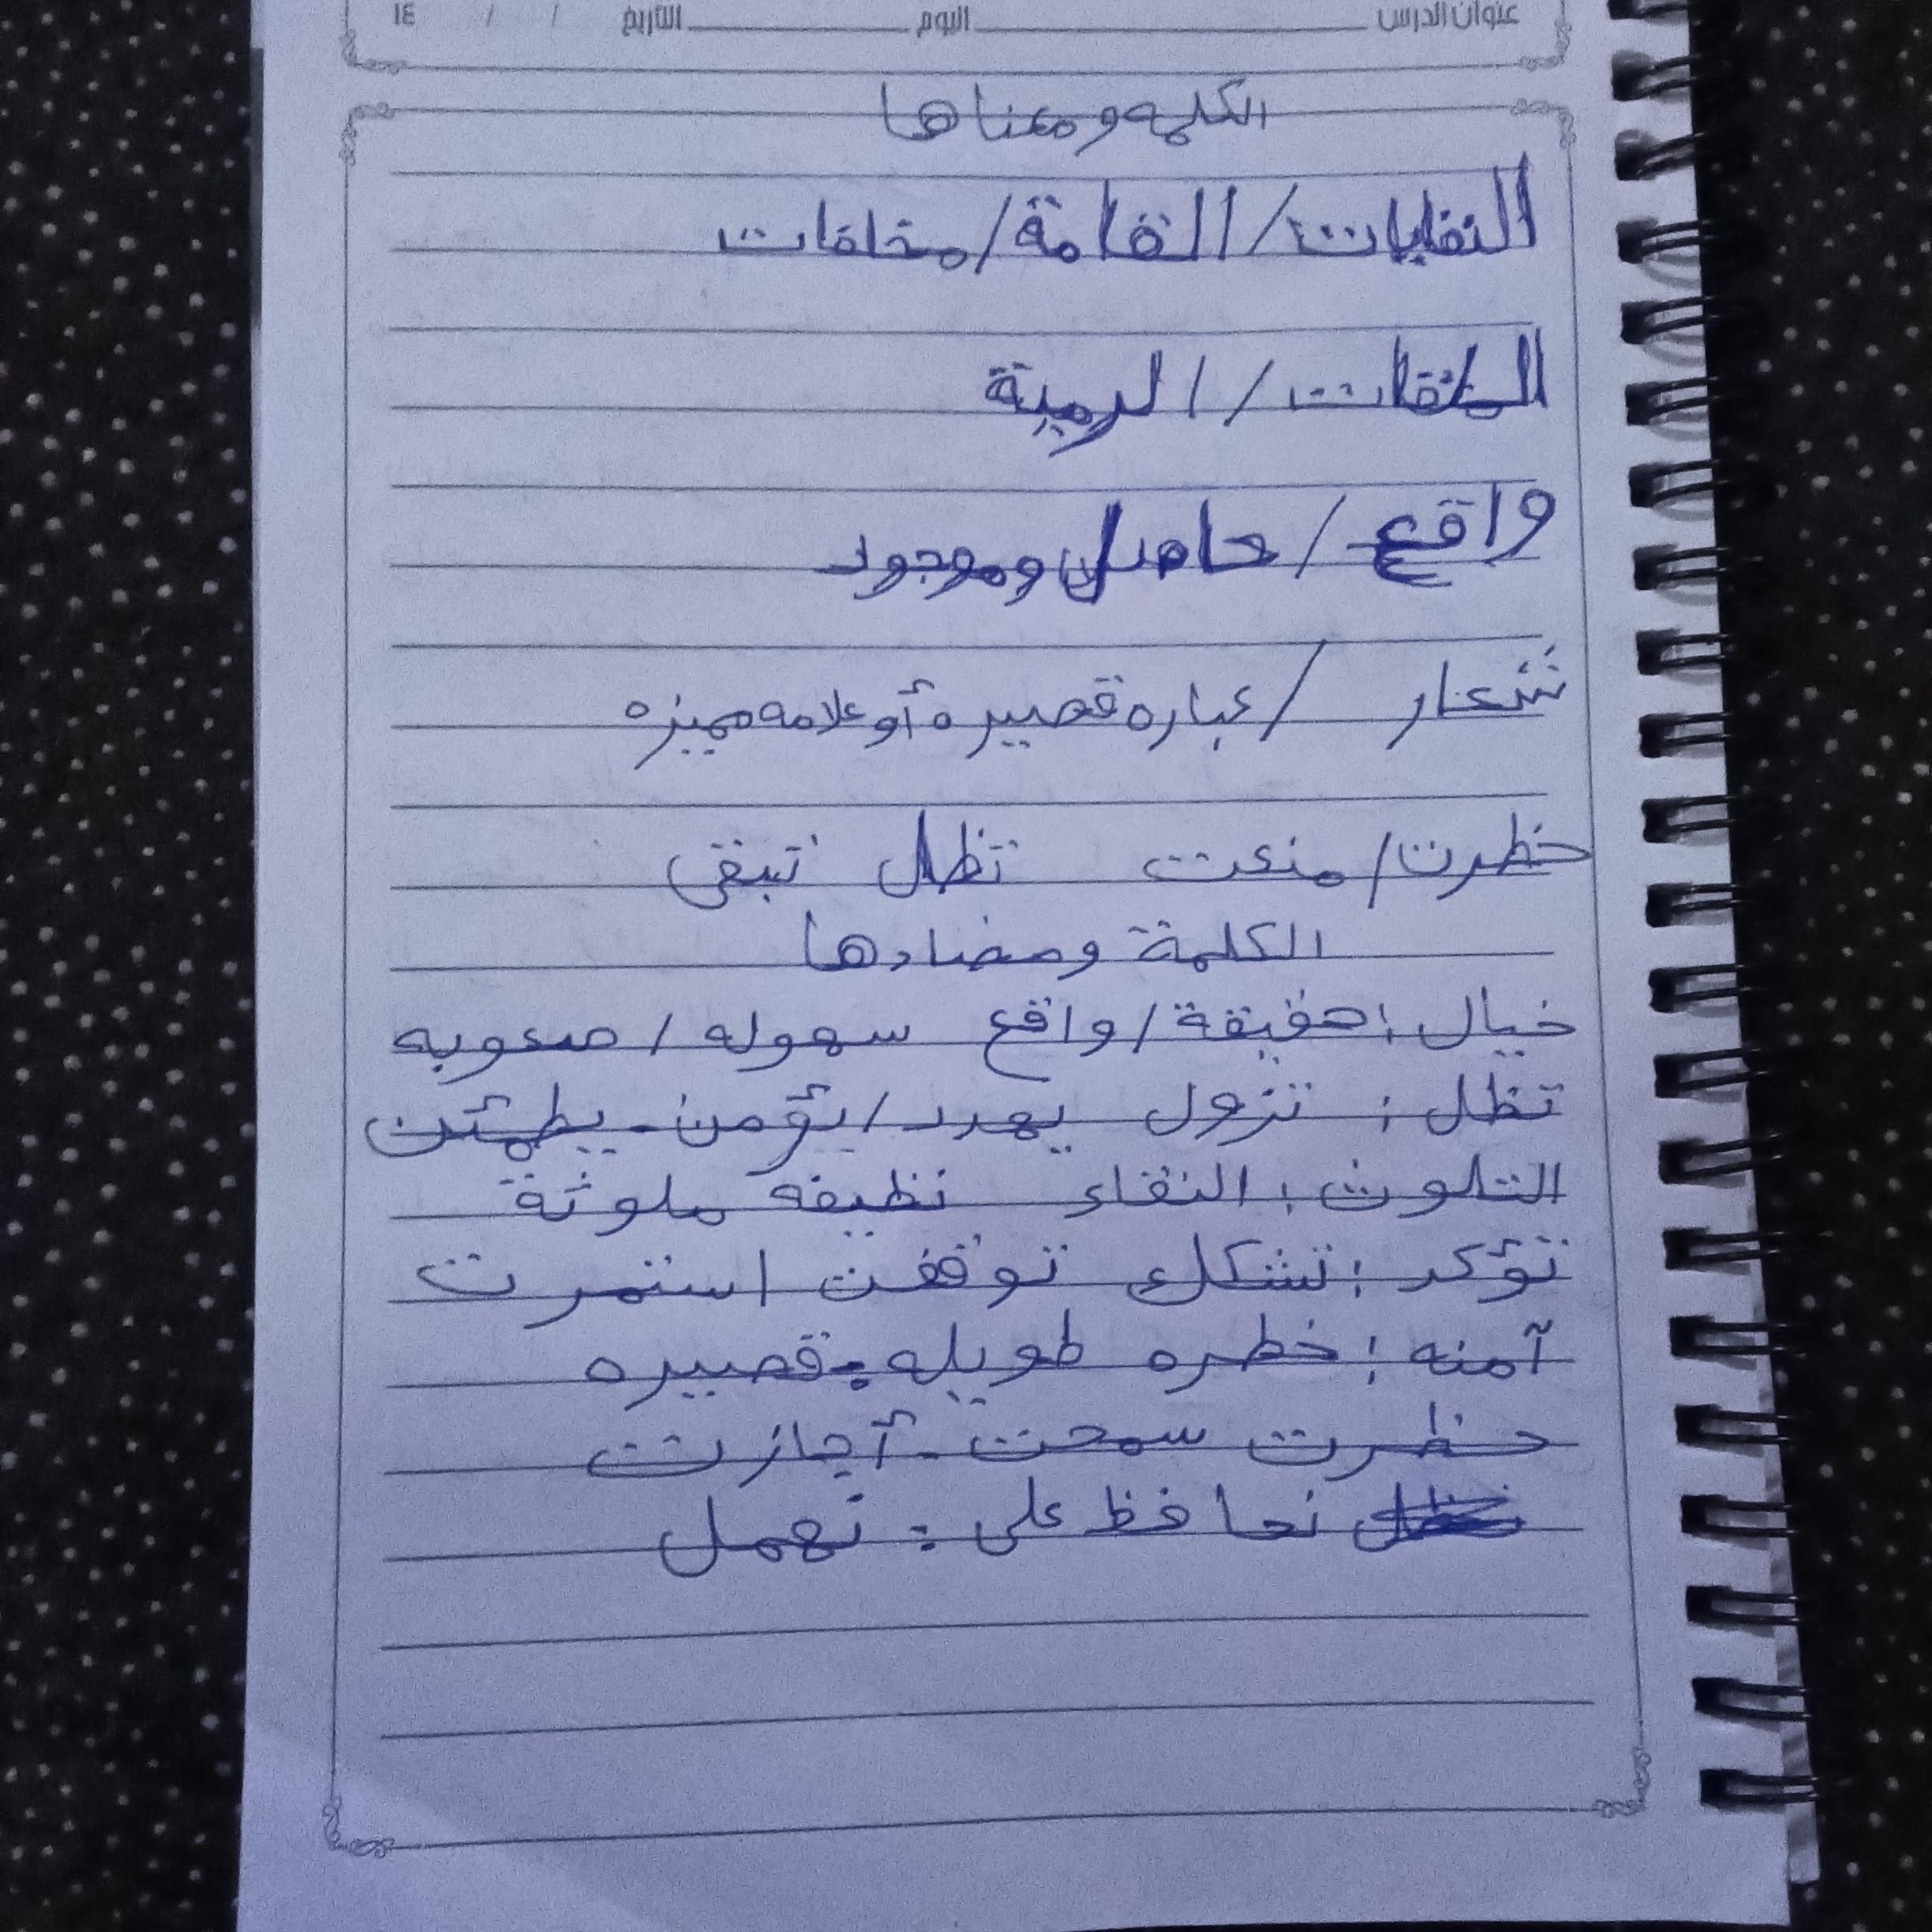 عنوان الدرس اليوم التاريخ / / ١٤
الكلمه ومعناها
النفايات / القامة / مخلفات
/ الرمية
واقع / حاصل وموجود
شعار / عباره قصيره أو علامه مميزه
خظرت / منعت تظل تبقى
الكلمة ومضادها
خيال : حقيقة / واقع سهوله / صعوبه
تظل : تزول يهدد / يؤمن - يطمئن
التلوث : النقاء نظيفه ملوثة
تؤكد : تشكك توقفت استمرت
آمنه : خطره طويله - قصيره
حظرت سمحت - أجازت
نحافظ على : نهمل